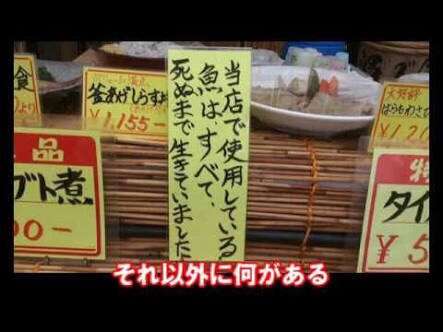 食
より
釜あげしらす丼
¥1,155-
品
ブト煮
00-
当店で使用している
魚は、すべて、
死ぬまで生きていました
¥120
特
タイ
¥5
それ以外に何がある